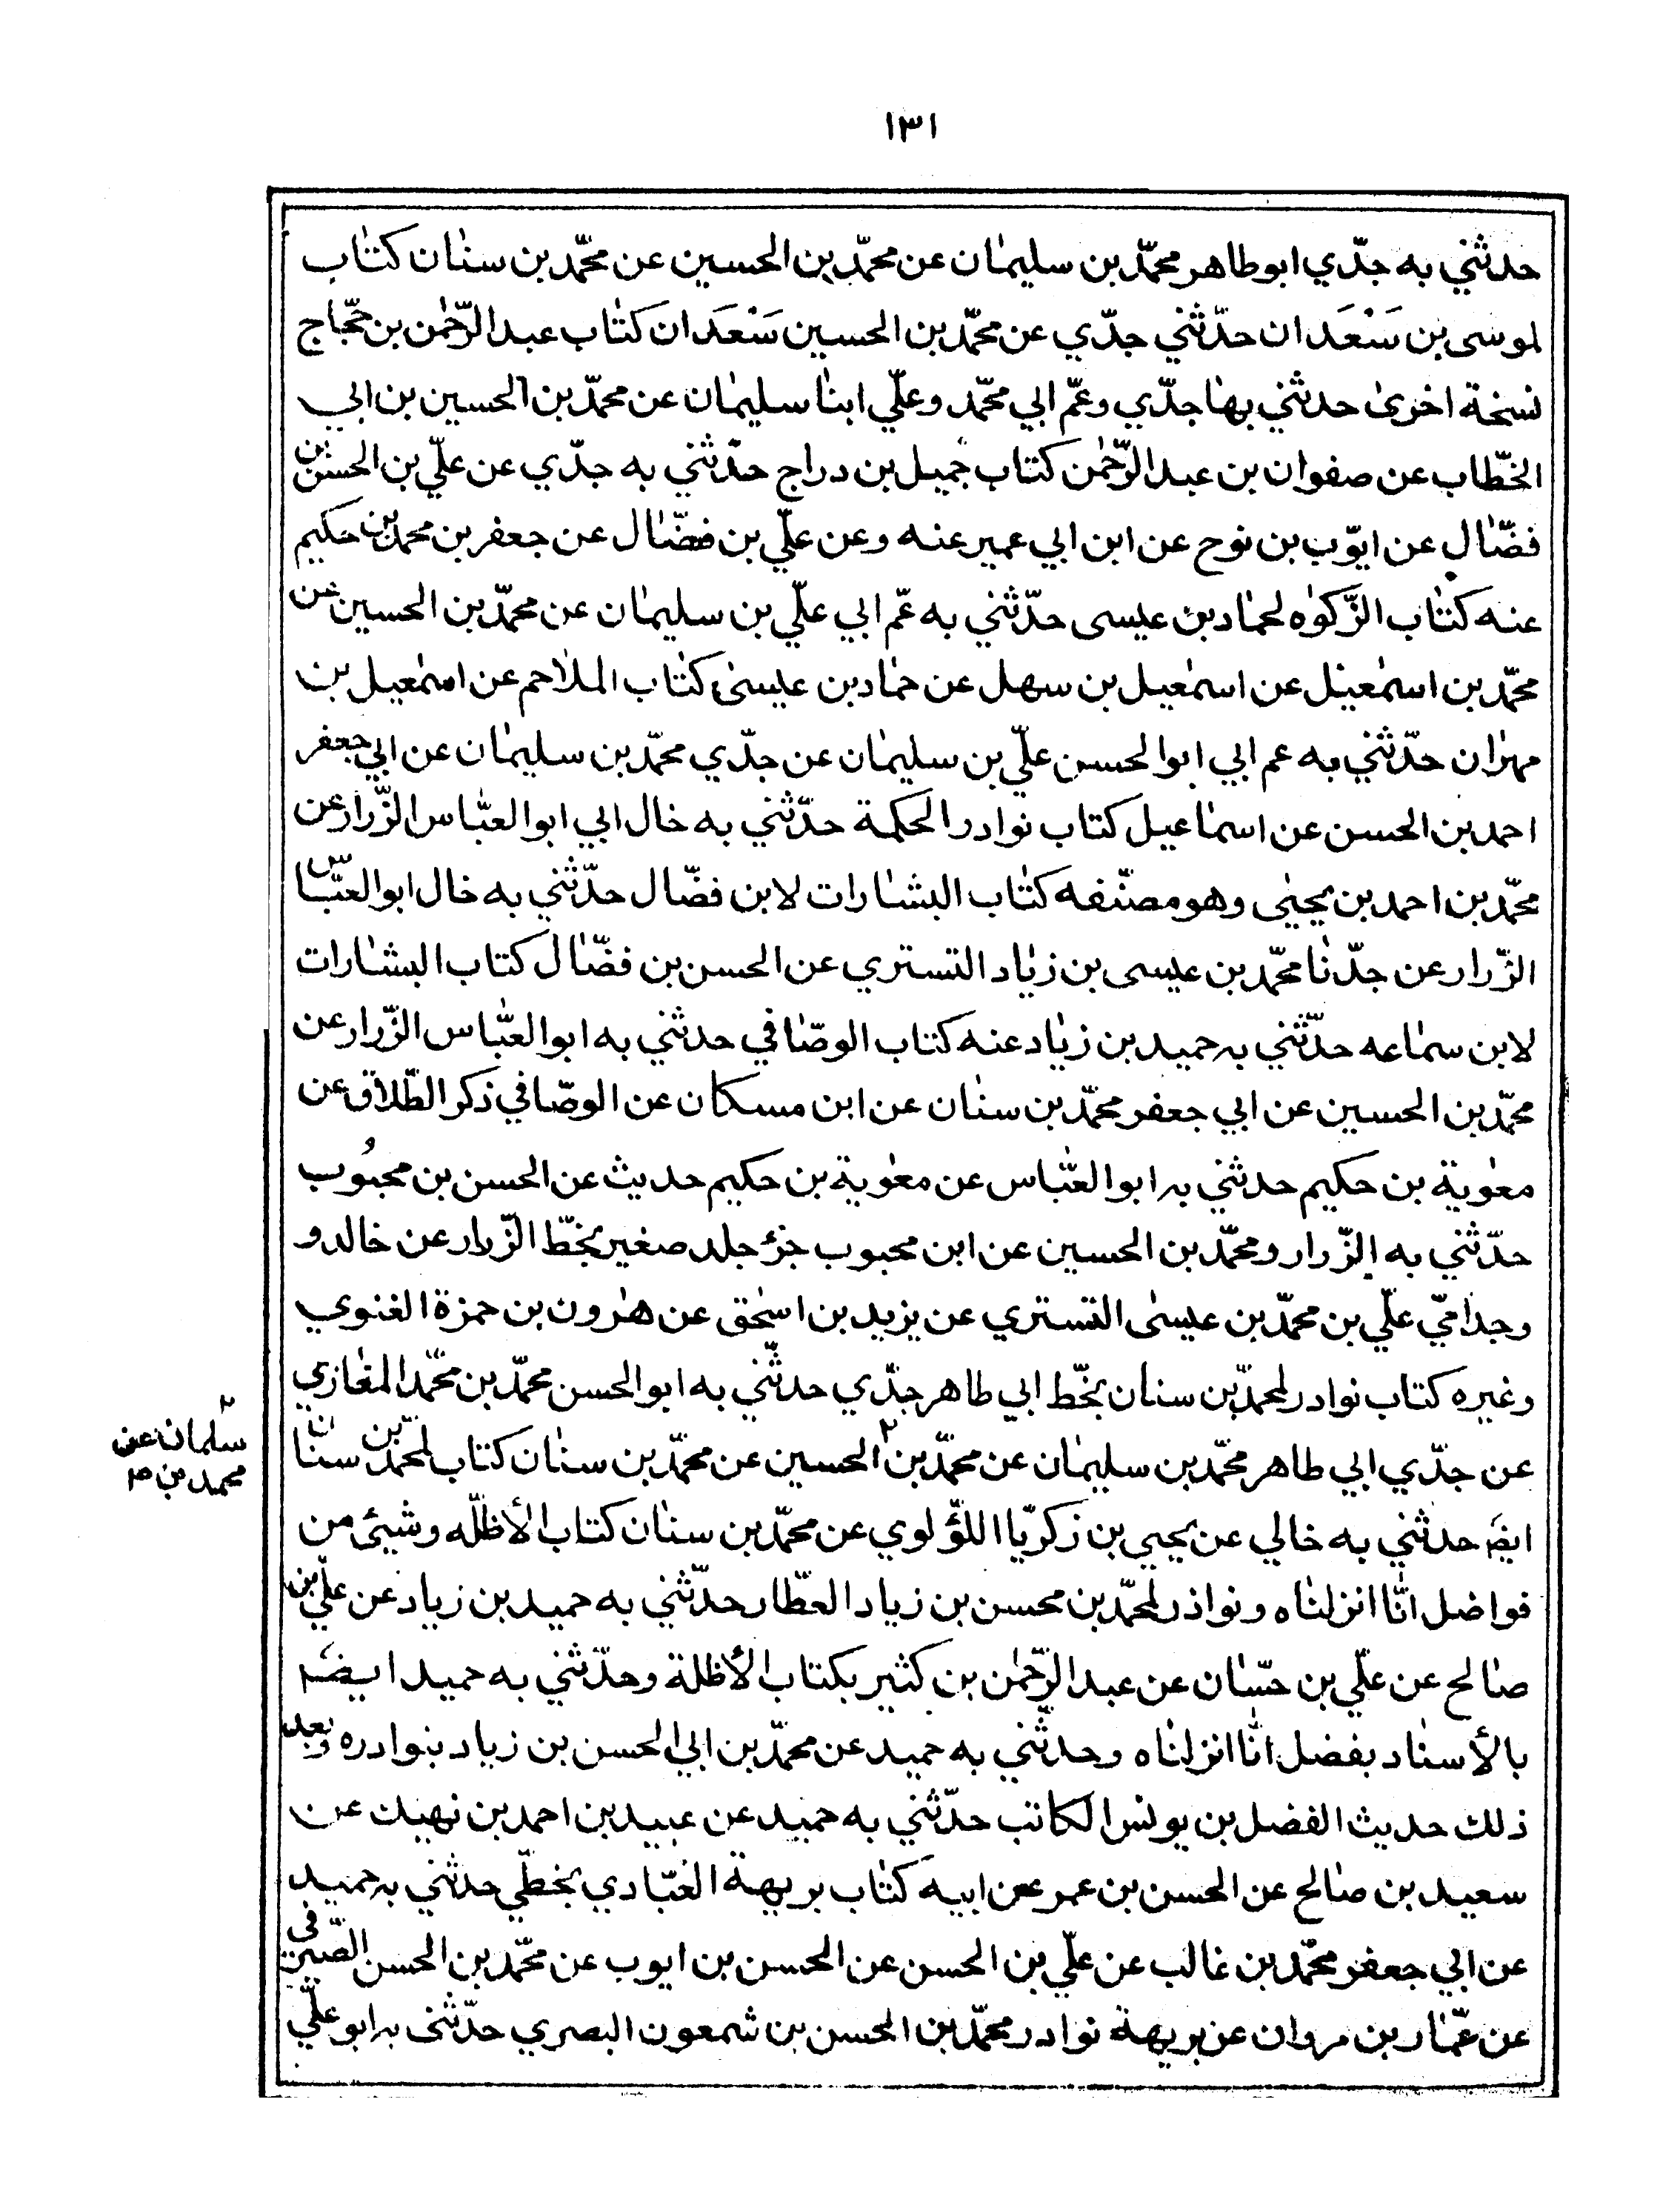 ١٣١
حدثني به جدّي ابو طاهر محمّد بن سليمٰان عن محمّد بن الحسين عن محمّد بن سنٰان كتٰاب
لموسى بن سَعْدَان حدّثني جدّي عن محمّد بن الحسين سَعْدَان كتٰاب عبد الرّحمٰن بن حجّاج
نسخة اخرىٰ حدثني بهٰا جدّي وعمّ ابي محمّد وعلّي ابنٰا سليمٰان عن محمّد بن الحسين بن ابي
الخطّاب عن صفوان بن عبد الرّحمٰن كتاب جميل بن دراج حدّثني به جدّي عن علّي بن الحسن بن
فضّٰال عن ايّوب بن نوح عن ابن ابي عمير عنه وعن علّي بن فضّٰال عن جعفر بن محمد بن حكيم
عنه كتٰاب الزّكوٰه لحمٰاد بن عيسى حدّثني به عمّ ابي علّي بن سليمٰان عن محمّد بن الحسين عن
محمّد بن اسمٰعيٰل عن اسمٰعيل بن سهل عن حمٰاد بن عيسىٰ كتٰاب الملٰاحم عن اسمٰعيل بن
مهرٰان حدّثني به عم ابي ابو الحسن علّي بن سليمٰان عن جدّي محمّد بن سليمٰان عن ابي جعفر
احمد بن الحسن عن اسمٰاعيل كتاب نوادر الحكمة حدّثني به خال ابي ابو العبّٰاس الزّرار عن
محمّد بن احمد بن يحيىٰ وهو مصنّفه كتٰاب البشٰارات لابن فضّال حدّثني به خال ابو العبّاس
الزّرار عن جدّنٰا محمّد بن عيسى بن زيٰاد التستري عن الحسن بن فضّٰال كتاب البشٰارات
لابن سمٰاعه حدّثني به حميد بن زيٰاد عنه كتاب الوصّٰافي حدثني به ابو العبّٰاس الزّرار عن
محمّد بن الحسين عن ابي جعفر محمّد بن سنٰان عن ابن مسكان عن الوصّٰافي ذكر الطّلاق عن
معٰوية بن حكيم حدثني به ابو العبّٰاس عن معٰوية بن حكيم حديث عن الحسن بن محبُوب
حدّثني به الزّرار ومحمّد بن الحسين عن ابن محبوب جزء جلد صغير بخطّ الزّرار عن خالد و
وجذامّي علّي بن محمّد بن عيسىٰ التستري عن يزيد بن اسٰحق عن هٰرون بن حمزة الغنوي
وغيره كتاب نوادر لمحمّد بن سنان بخطّ ابي طاهر جدّي حدثّني به ابو الحسن محمّد بن محمّد المغٰازي
عن جدّي ابي طاهر محمّد بن سليمٰان عن محمّد بن ٢ الحسين عن محمّد بن سنٰان كتاب لمحمّد بن سنٰان
سلمان عن
محمد بن صح
ايضَ حدثني به خالي عن يحيى بن زكريّا اللؤلوي عن محمّد بن سنٰان كتاب الأظلّه وشيئ من
فواضل انّٰا انزلنٰاه ونوادر لمحمّد بن محسن بن زياد العطّار حدّثني به حميد بن زياد عن علّي بن
صٰالح عن علّي بن حسّٰان عن عبد الرّحمٰن بن كثير بكتاب الأظلة وحدّثني به حميد ايضَ
بالأسنٰاد بفضل انّٰا انزلنٰاه وحدثّني به حميد عن محمّد بن ابي الحسن بن زياد بنوادره وبعد
ذلك حديث الفضل بن يونس الكاتب حدّثني به حميد عن عبيد بن احمد بن نهيك عن
سعيد بن صٰالح عن الحسن بن عمر عن ابيه كتٰاب بريهة العبّادي بخطّي حدثني به حميد
عن ابي جعفر محمّد بن غالب عن علّي بن الحسن عن الحسن بن ايوب عن محمّد بن الحسن الصّيرفي
عن عمّٰار بن مروان عن بريهة نوادر محمّد بن الحسن بن شمعون البصري حدّثنى به ابو علّي